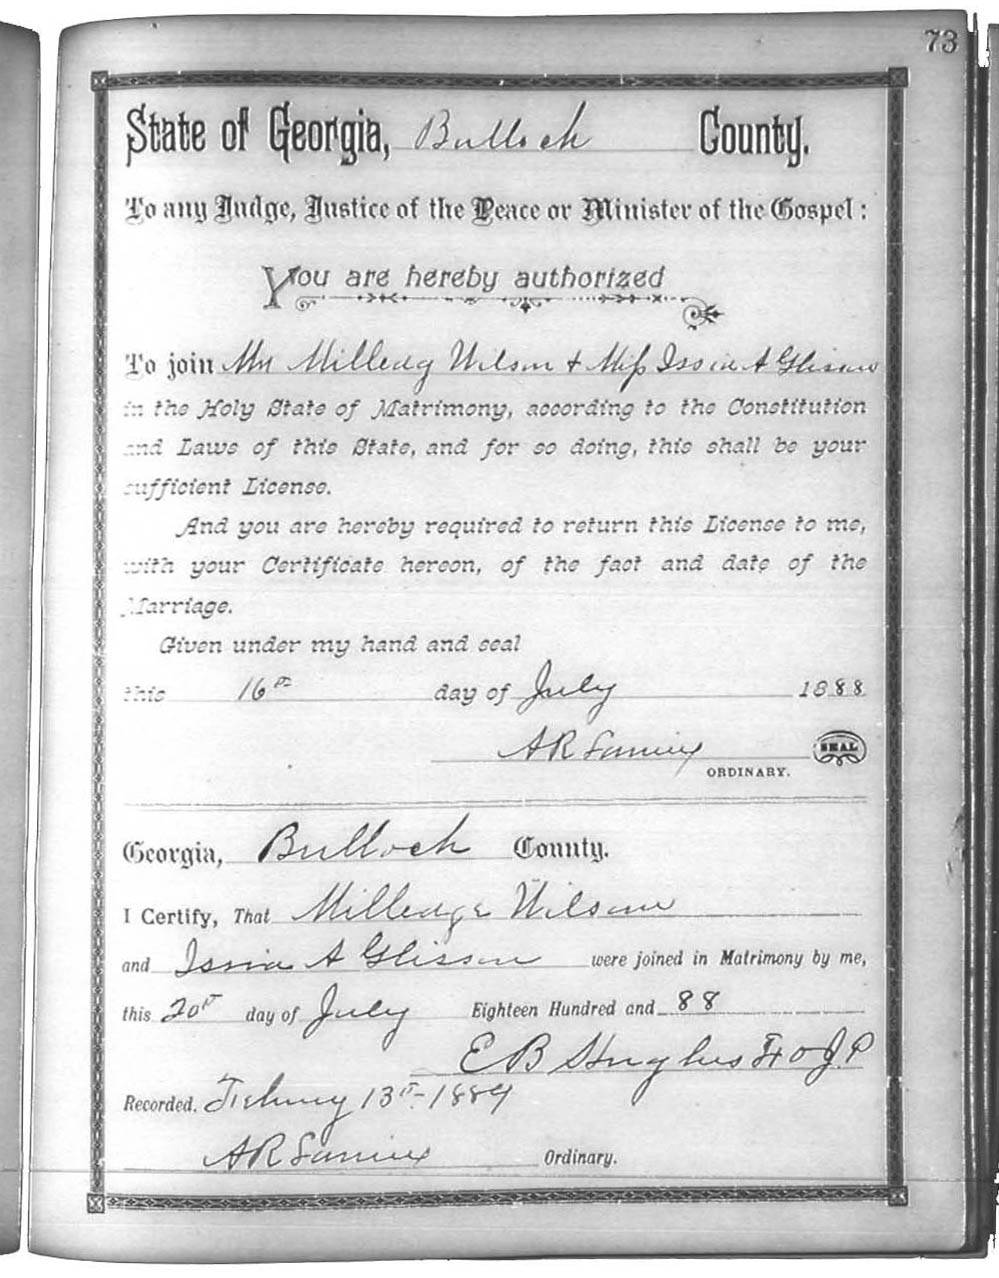 73
State of Georgia, Bulloch County.
To any Judge, Justice of the Peace or Minister of the Gospel:
You are hereby authorized
To join Mr Milledg Wilson + Miss Issia A Glisson
in the Holy State of Matrimony, according to the Constitution
and Laws of this State, and for so doing, this shall be your
sufficient License.
And you are hereby required to return this License to me,
with your Certificate hereon, of the fact and date of the
Marriage.
Given under my hand and seal
this 16th day of July 1888
A R Lanier SEAL
ORDINARY.
Georgia, Bulloch County.
I Certify, That Milledge Wilson
and Issia A Glisson were joined in Matrimony by me,
this 20th day of July Eighteen Hundred and 88
E B Hughes J.P
Recorded. 13th 1889
A R Lanier Ordinary.